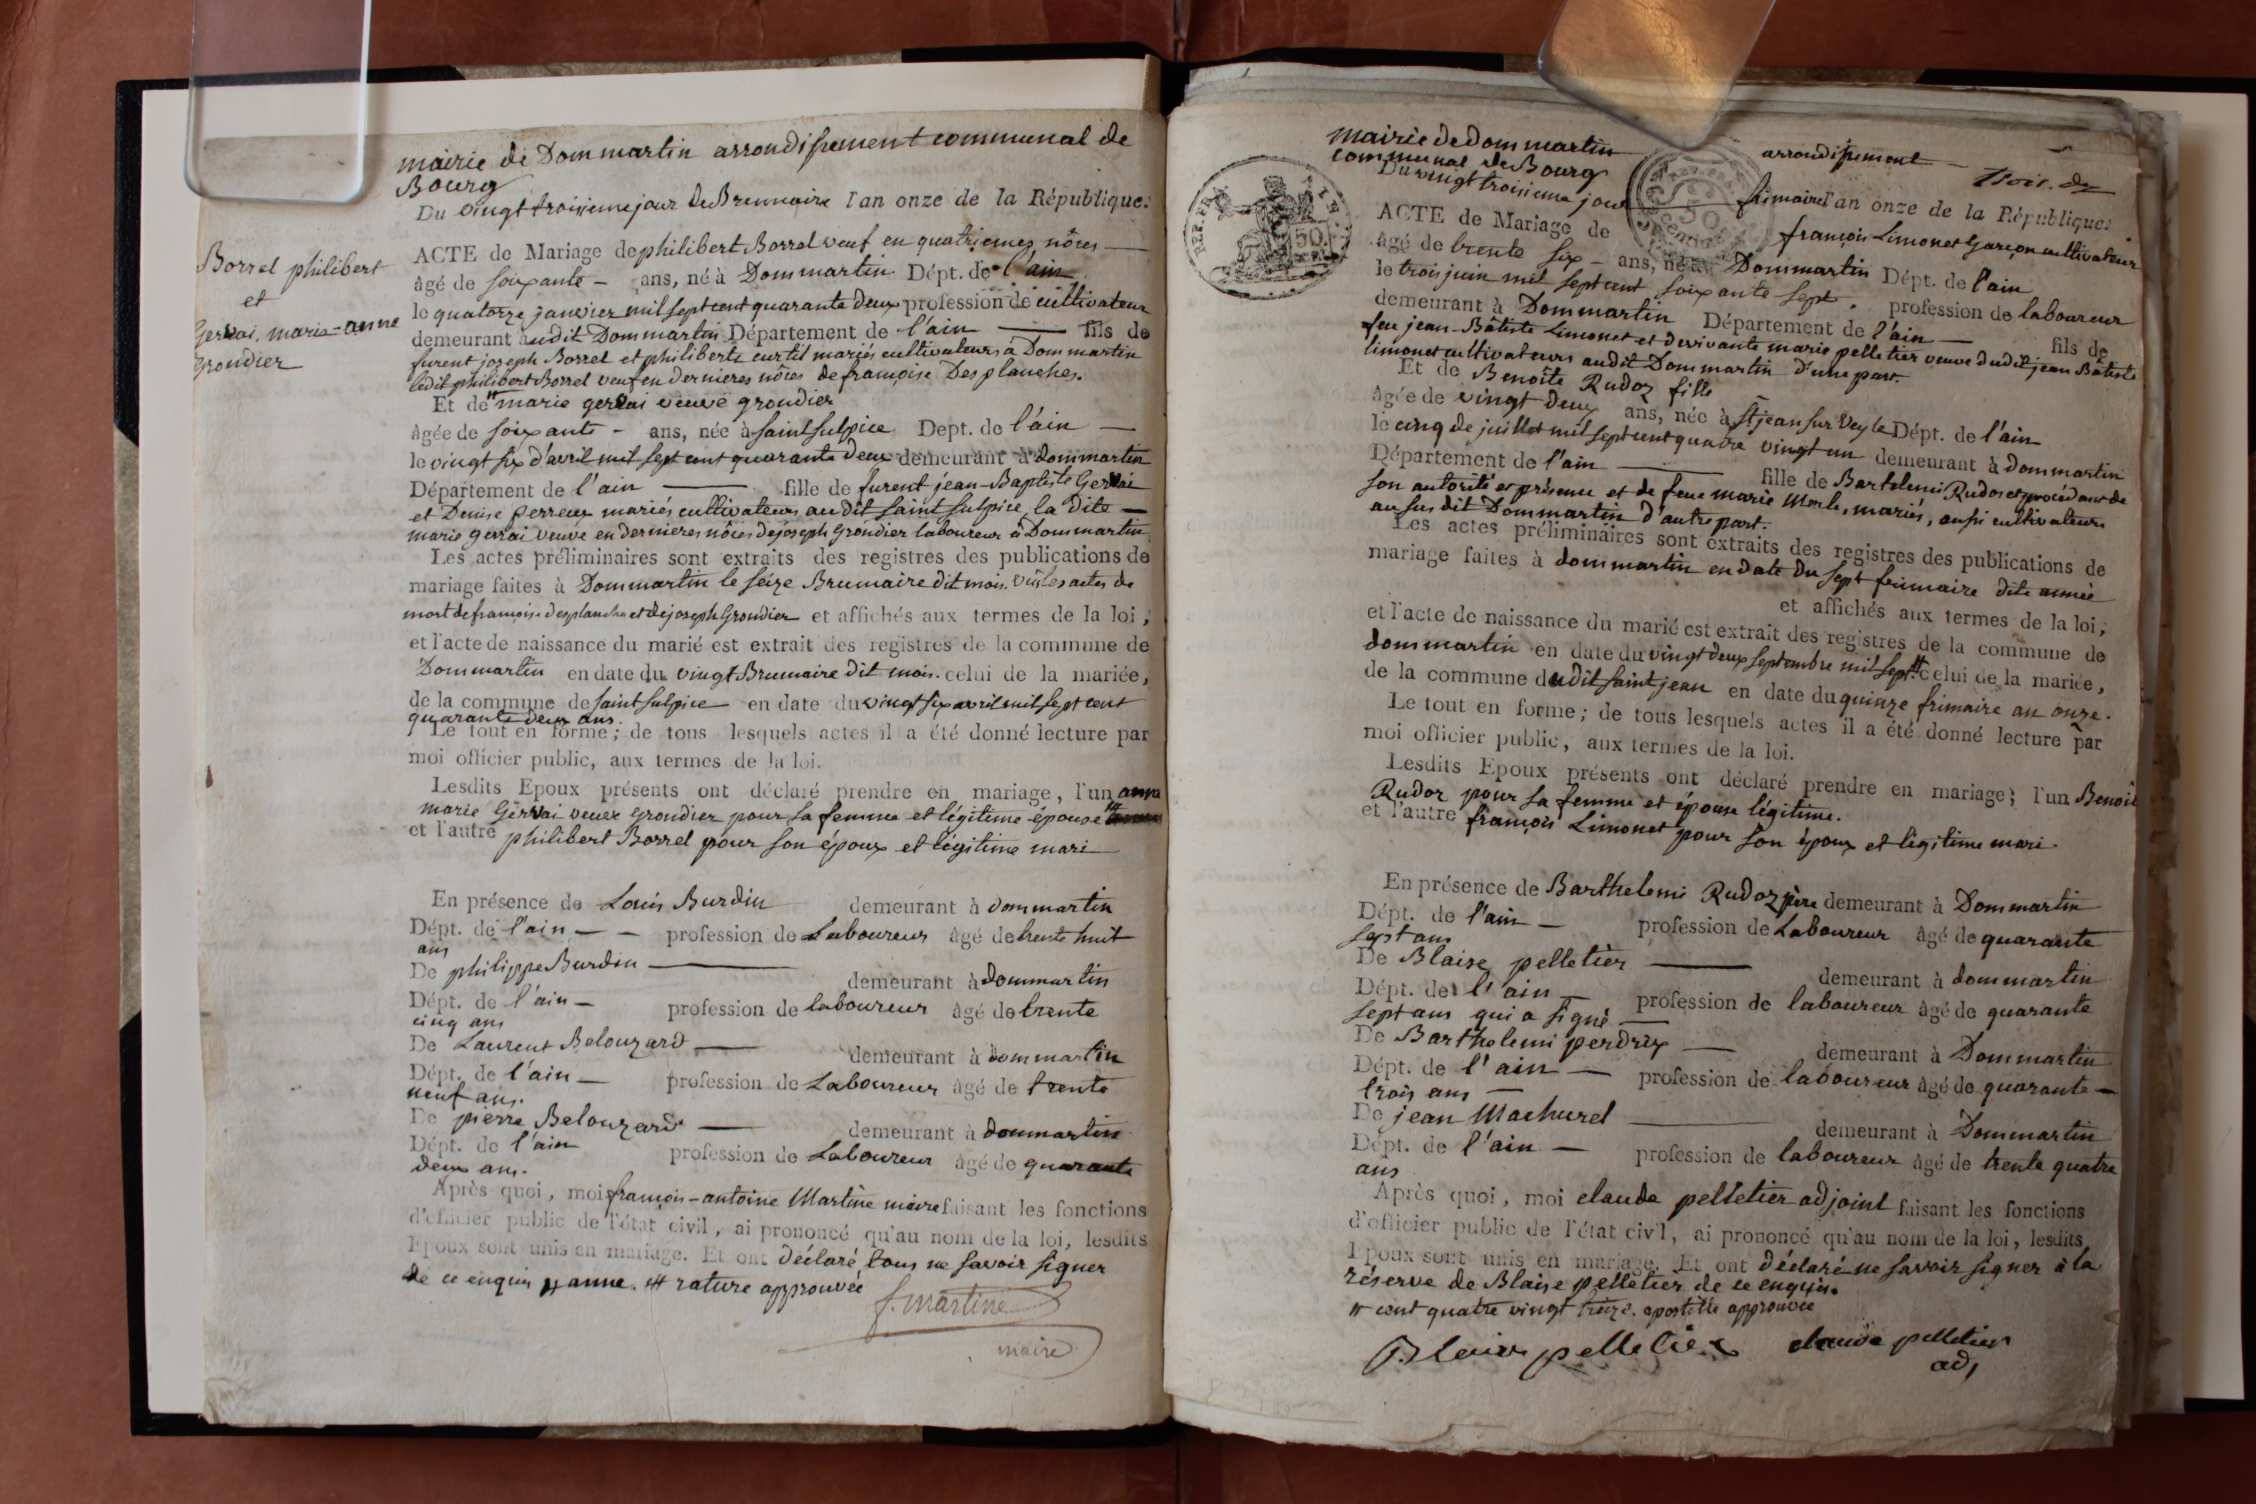 mairie de Dommartin arrondissement communal de
Bourg
Du vingt troisieme jour de Brumaire l'an onze de la République.
Borrel philibert
et
Gervai, marie-anne
Grondier
ACTE de Mariage de philibert Borrel veuf en quatriemes nôces
âgé de soixante - ans, né à Dommartin Dépt. de l'ain
le quatorze janvier mil sept cent quarante deux profession de cultivateur
demeurant audit Dommartin Département de l'ain fils de
furent joseph Borrel et philiberte curtil mariés cultivateurs à Dommartin
ledit philibert Borrel veuf en dernieres nôces de françoise Desplanches.
Et de marie gervai veuve grondier
âgée de soixante - ans, née à saint sulpice Dept. de l'ain
le vingt six d'avril mil sept cent quarante deux demeurant à dommartin
Département de l'ain fille de furent jean-Baptiste Gervai
et Denise perreux mariés cultivateurs au dit saint sulpice, la dite
marie gervai veuve en dernieres nôces de joseph Grondier laboureur à Dommartin.
Les actes préliminaires sont extraits des registres des publications de
mariage faites à Dommartin le seize Brumaire dit mois. vûs les actes de
mort de françoise desplanche et de joseph Grondier et affichés aux termes de la loi ;
et l'acte de naissance du marié est extrait des registres de la commune de
Dommartin en date du vingt Brumaire dit mois. celui de la mariée,
de la commune de saint sulpice en date du vingt six avril mil sept cent
quarante deux ans.
Le tout en forme ; de tous lesquels actes il a été donné lecture par
moi officier public, aux termes de la loi.
Lesdits Epoux présents ont déclaré prendre en mariage, l'un anne
marie Gervai veuve Grondier pour sa femme et légitime épouse
et l'autre philibert Borrel pour son époux et légitime mari
En présence de Louis Burdin demeurant à dommartin
Dépt. de l'ain - - profession de Laboureur âgé de trente huit
ans
De philippe Burdin demeurant à dommartin
Dépt. de l'ain - profession de laboureur âgé de trente
cinq ans
De Laurent Belouzard demeurant à dommartin
Dépt. de l'ain - profession de Laboureur âgé de trente
neuf ans.
De pierre Belouzard demeurant à dommartin
Dépt. de l'ain profession de Laboureur âgé de quarante
deux ans.
Après quoi, moi françois-antoine Martine maire faisant les fonctions
d'officier public de l'état civil, ai prononcé qu'au nom de la loi, lesdits
Epoux sont unis en mariage. Et ont déclaré tous ne savoir signer
de ce enquis anne. rature approuvée
f. martine
maire
mairie de dommartin arrondissement
communal de Bourg
Du vingt troisieme jour frimaire l'an onze de la République.
ACTE de Mariage de françois Limonet Garçon cultivateur
âgé de trente six - ans, né à Dommartin Dépt. de l'ain
le trois juin mil sept cent soixante sept. profession de laboureur
demeurant à Dommartin Département de l'ain fils de
feu jean-Bâtiste Limonet et de vivante marie pelletier veuve dudit jean Bâtiste
limonet cultivateurs audit Dommartin d'une part.
Et de Benoîte Rudoz fille
âgée de vingt deux ans, née à St jean sur Veyle Dépt. de l'ain
le cinq de juillet mil sept cent quatre vingt un demeurant à dommartin
Département de l'ain fille de Bartelemi Rudoz et procédant de
son autorité et présence et de feue marie Morle, mariés, aussi cultivateurs
au sus dit Dommartin d'autre part.
Les actes préliminaires sont extraits des registres des publications de
mariage faites à dommartin en date du sept frimaire dite année
et affichés aux termes de la loi ;
et l'acte de naissance du marié est extrait des registres de la commune de
dommartin en date du vingt deux septembre mil sept celui de la mariée,
de la commune dudit saint jean en date du quinze frimaire an onze.
Le tout en forme ; de tous lesquels actes il a été donné lecture par
moi officier public, aux termes de la loi.
Lesdits Epoux présents ont déclaré prendre en mariage; l'un Benoit
Rudoz pour sa femme et épouse légitime.
et l'autre françois Limonet pour son époux et légitime mari.
En présence de Barthelemi Rudoz père demeurant à Dommartin
Dépt. de l'ain - profession de Laboureur âgé de quarante
sept ans
De Blaise pelletier demeurant à dommartin
Dépt. de l'ain - profession de laboureur âgé de quarante
sept ans qui a signé
De Barthelemi perdrix demeurant à Dommartin
Dépt. de l'ain - profession de laboureur âgé de quarante -
trois ans -
De jean Machurel demeurant à Dommartin
Dépt. de l'ain - profession de laboureur âgé de trente quatre
ans
Après quoi, moi claude pelletier adjoint faisant les fonctions
d'officier public de l'état civil, ai prononcé qu'au nom de la loi, lesdits
Epoux sont unis en mariage. Et ont déclaré ne savoir signer à la
réserve de Blaise pelletier de ce enquis.
cent quatre vingt treize. apostille approuvée
Blaise pelletier claude pelletier
adj